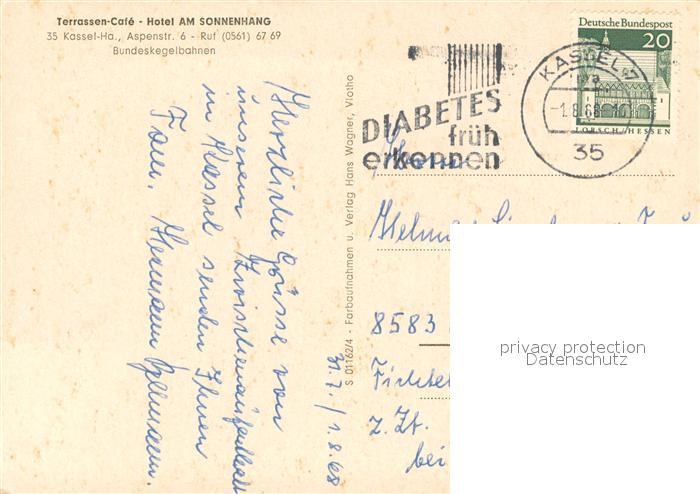 Terrassen-Café - Hotel AM SONNENHANG
35 Kassel-Ha., Aspenstr. 6 - Ruf (0561) 67 69
Bundeskegelbahnen
Herzliche Grüsse von
unserem Zwischenaufenthalt
in Kassel senden Ihnen
Fam. Hermann
31.7./1.8.68
S 01162/4 - Farbaufnahmen u. Verlag Hans Wagner, Vlotho
DIABETES
früh
erkennen
KASSEL 7
-1.8.68
35
Deutsche Bundespost
20
LORSCH/HESSEN
8583
z. Zt.
bei
privacy protection
Datenschutz